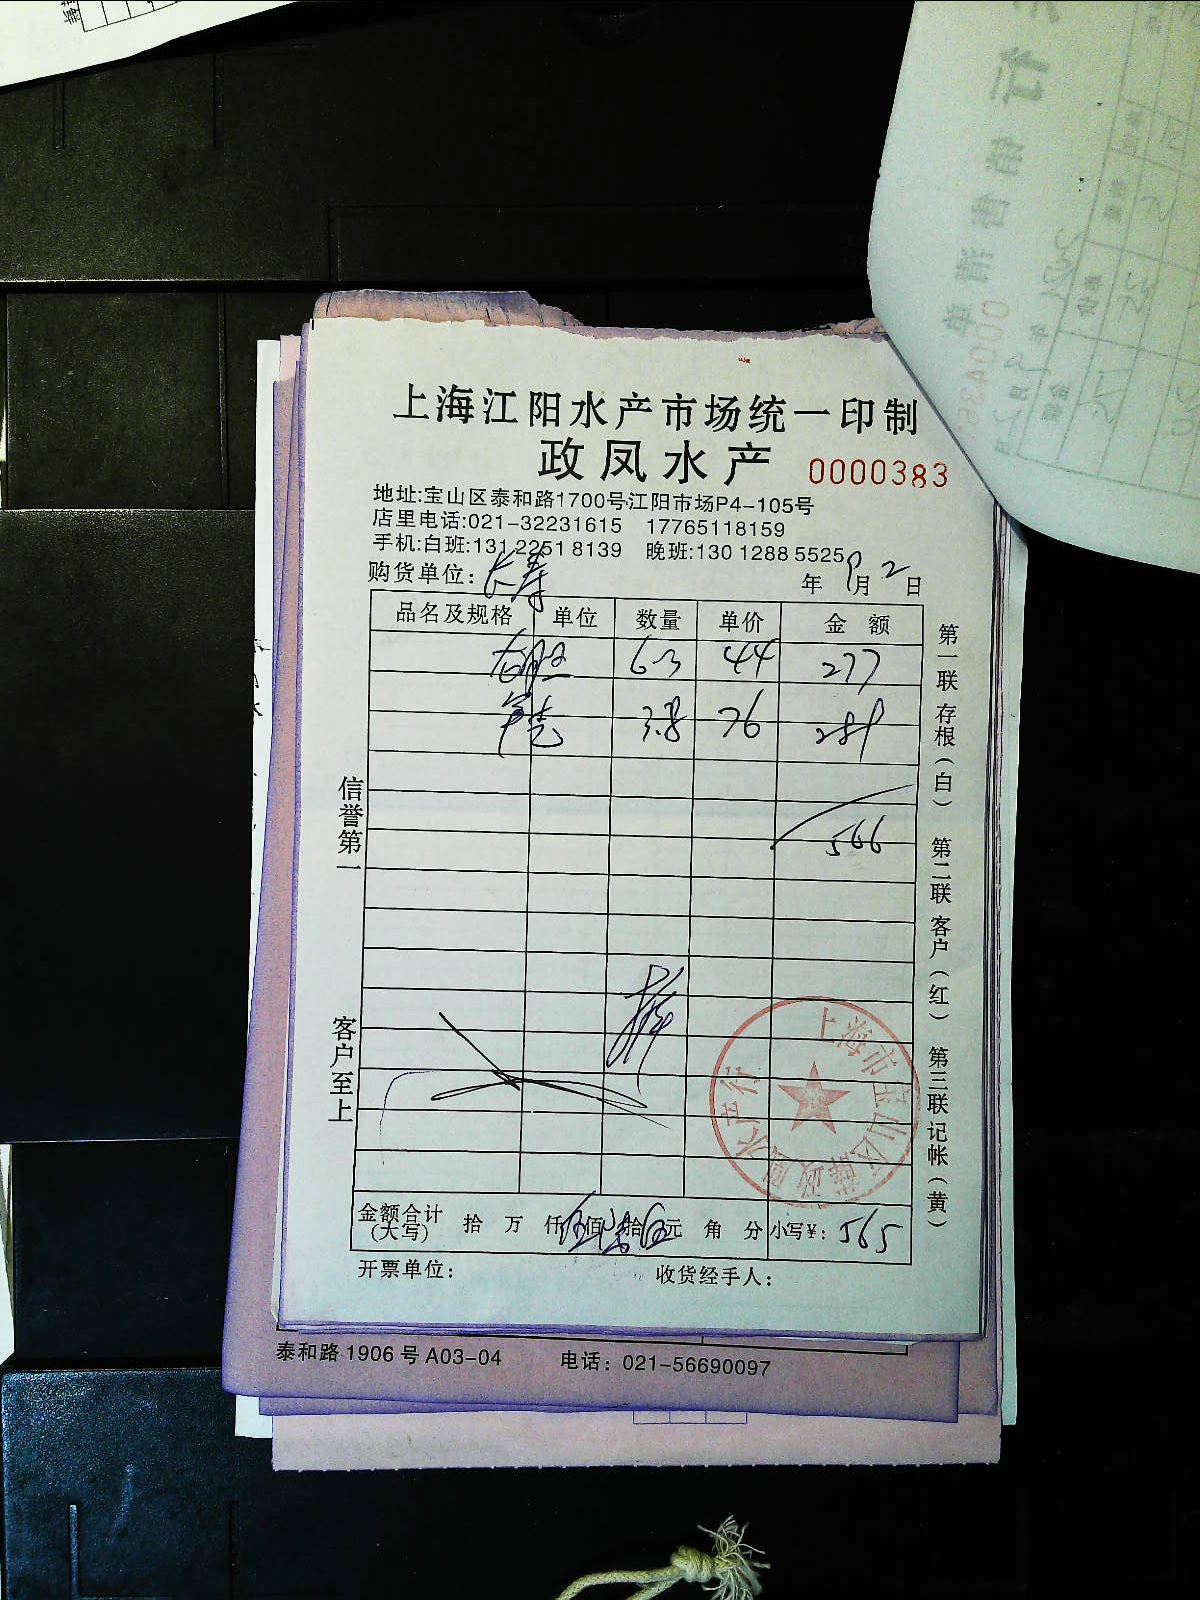 上海江阳水产市场统一印制
政凤水产 0000383
地址:宝山区泰和路1700号江阳市场P4-105号
店里电话:021-32231615 17765118159
手机:白班:131 2251 8139 晚班:130 1288 5525
购货单位: 长寿 年 9 月 2 日
品名及规格 单位 数量 单价 金额
6.3 44 277
3.8 76 289
566
信誉第一
客户至上
第一联 存根(白) 第二联 客户(红) 第三联 记帐(黄)
上海市宝山区
水产行
金额合计(大写) 拾 万 仟 伍 佰 陆 拾 伍 元 角 分 小写¥: 565
开票单位: 收货经手人:
泰和路 1906 号 A03-04 电话: 021-56690097